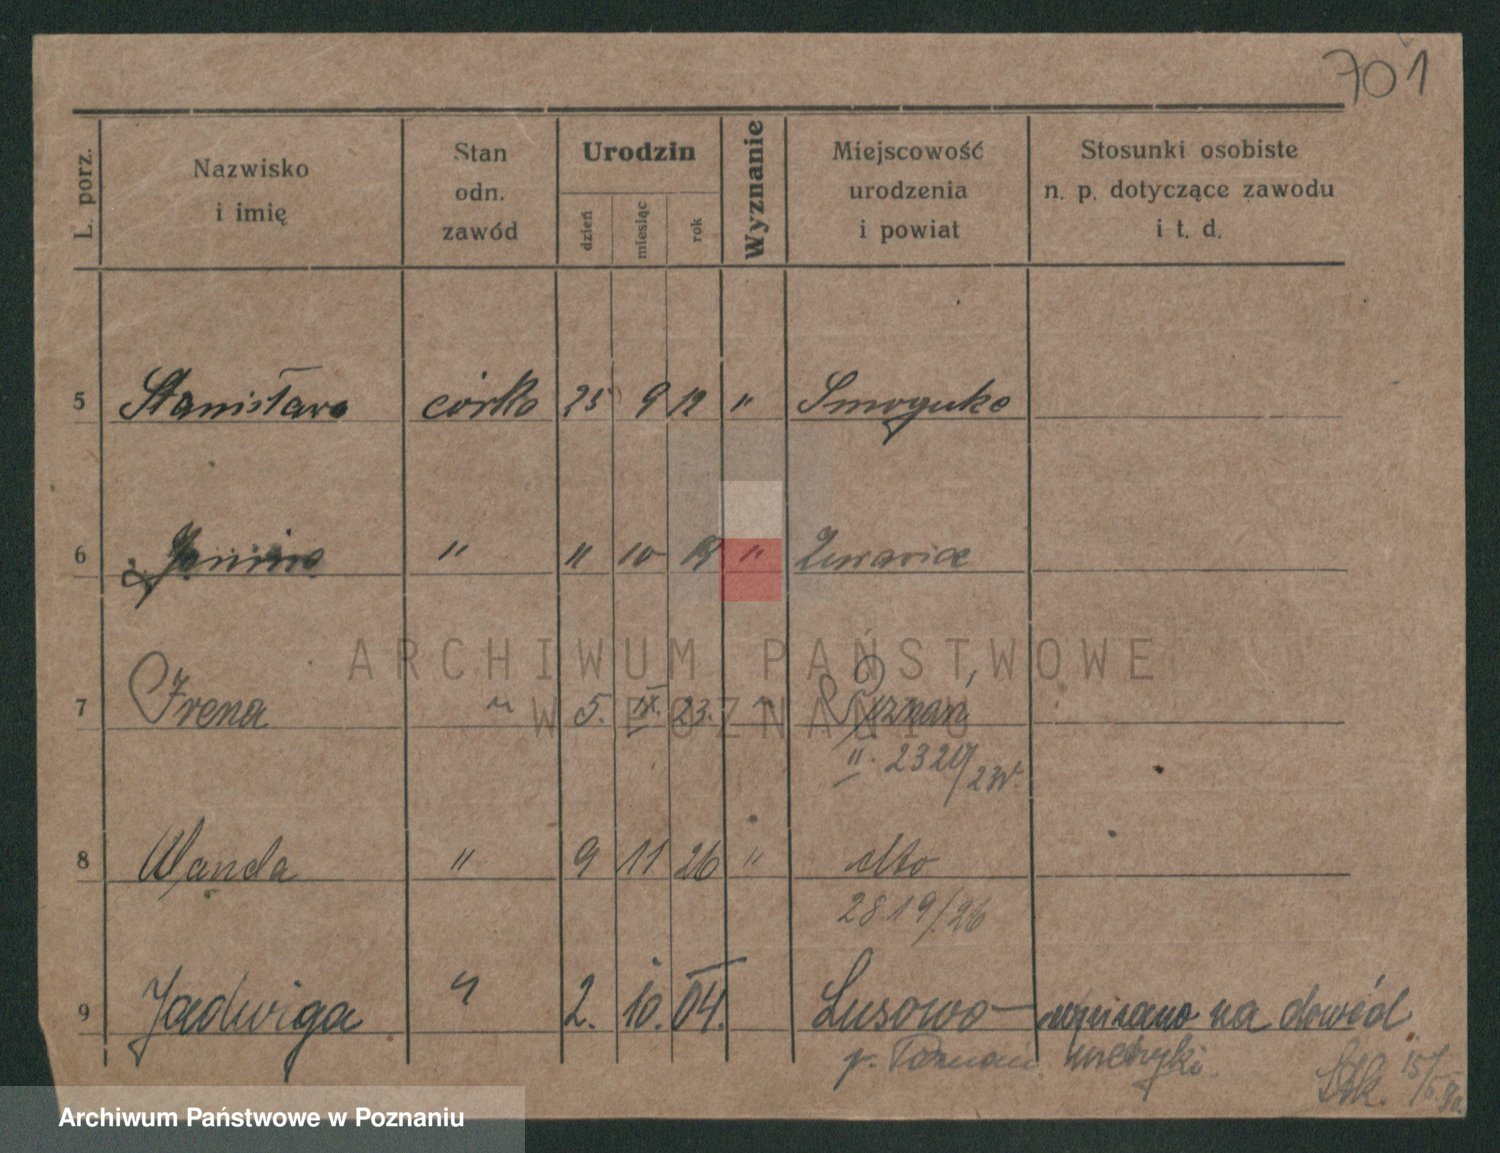 701
L. porz.
Nazwisko
i imię
Stan
odn.
zawód
Urodzin
dzień
miesiąc
rok
Wyznanie
Miejscowość
urodzenia
i powiat
Stosunki osobiste
n. p. dotyczące zawodu
i t. d.
5 Stanisława córka 25 9 12 "
6 Janina " " 10 "
ARCHIWUM PAŃSTWOWE
W POZNANIU
7 Irena " 5. IX. 23. " Poznań
8 Wanda " 9 11 26 " dtto
2819/26
9 Jadwiga " 2. 10. 04. Lusowo wpisano na dowód
p. Poznań metryki.
Archiwum Państwowe w Poznaniu